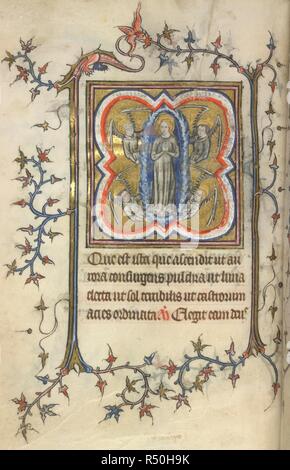 Que est ista que ascendit ut au
rora consurgens pulchra ut luna
electa ut sol terribilis ut castrorum
acies ordinata Elegit eam deus
alamy
Image ID: R50H9K
www.alamy.com